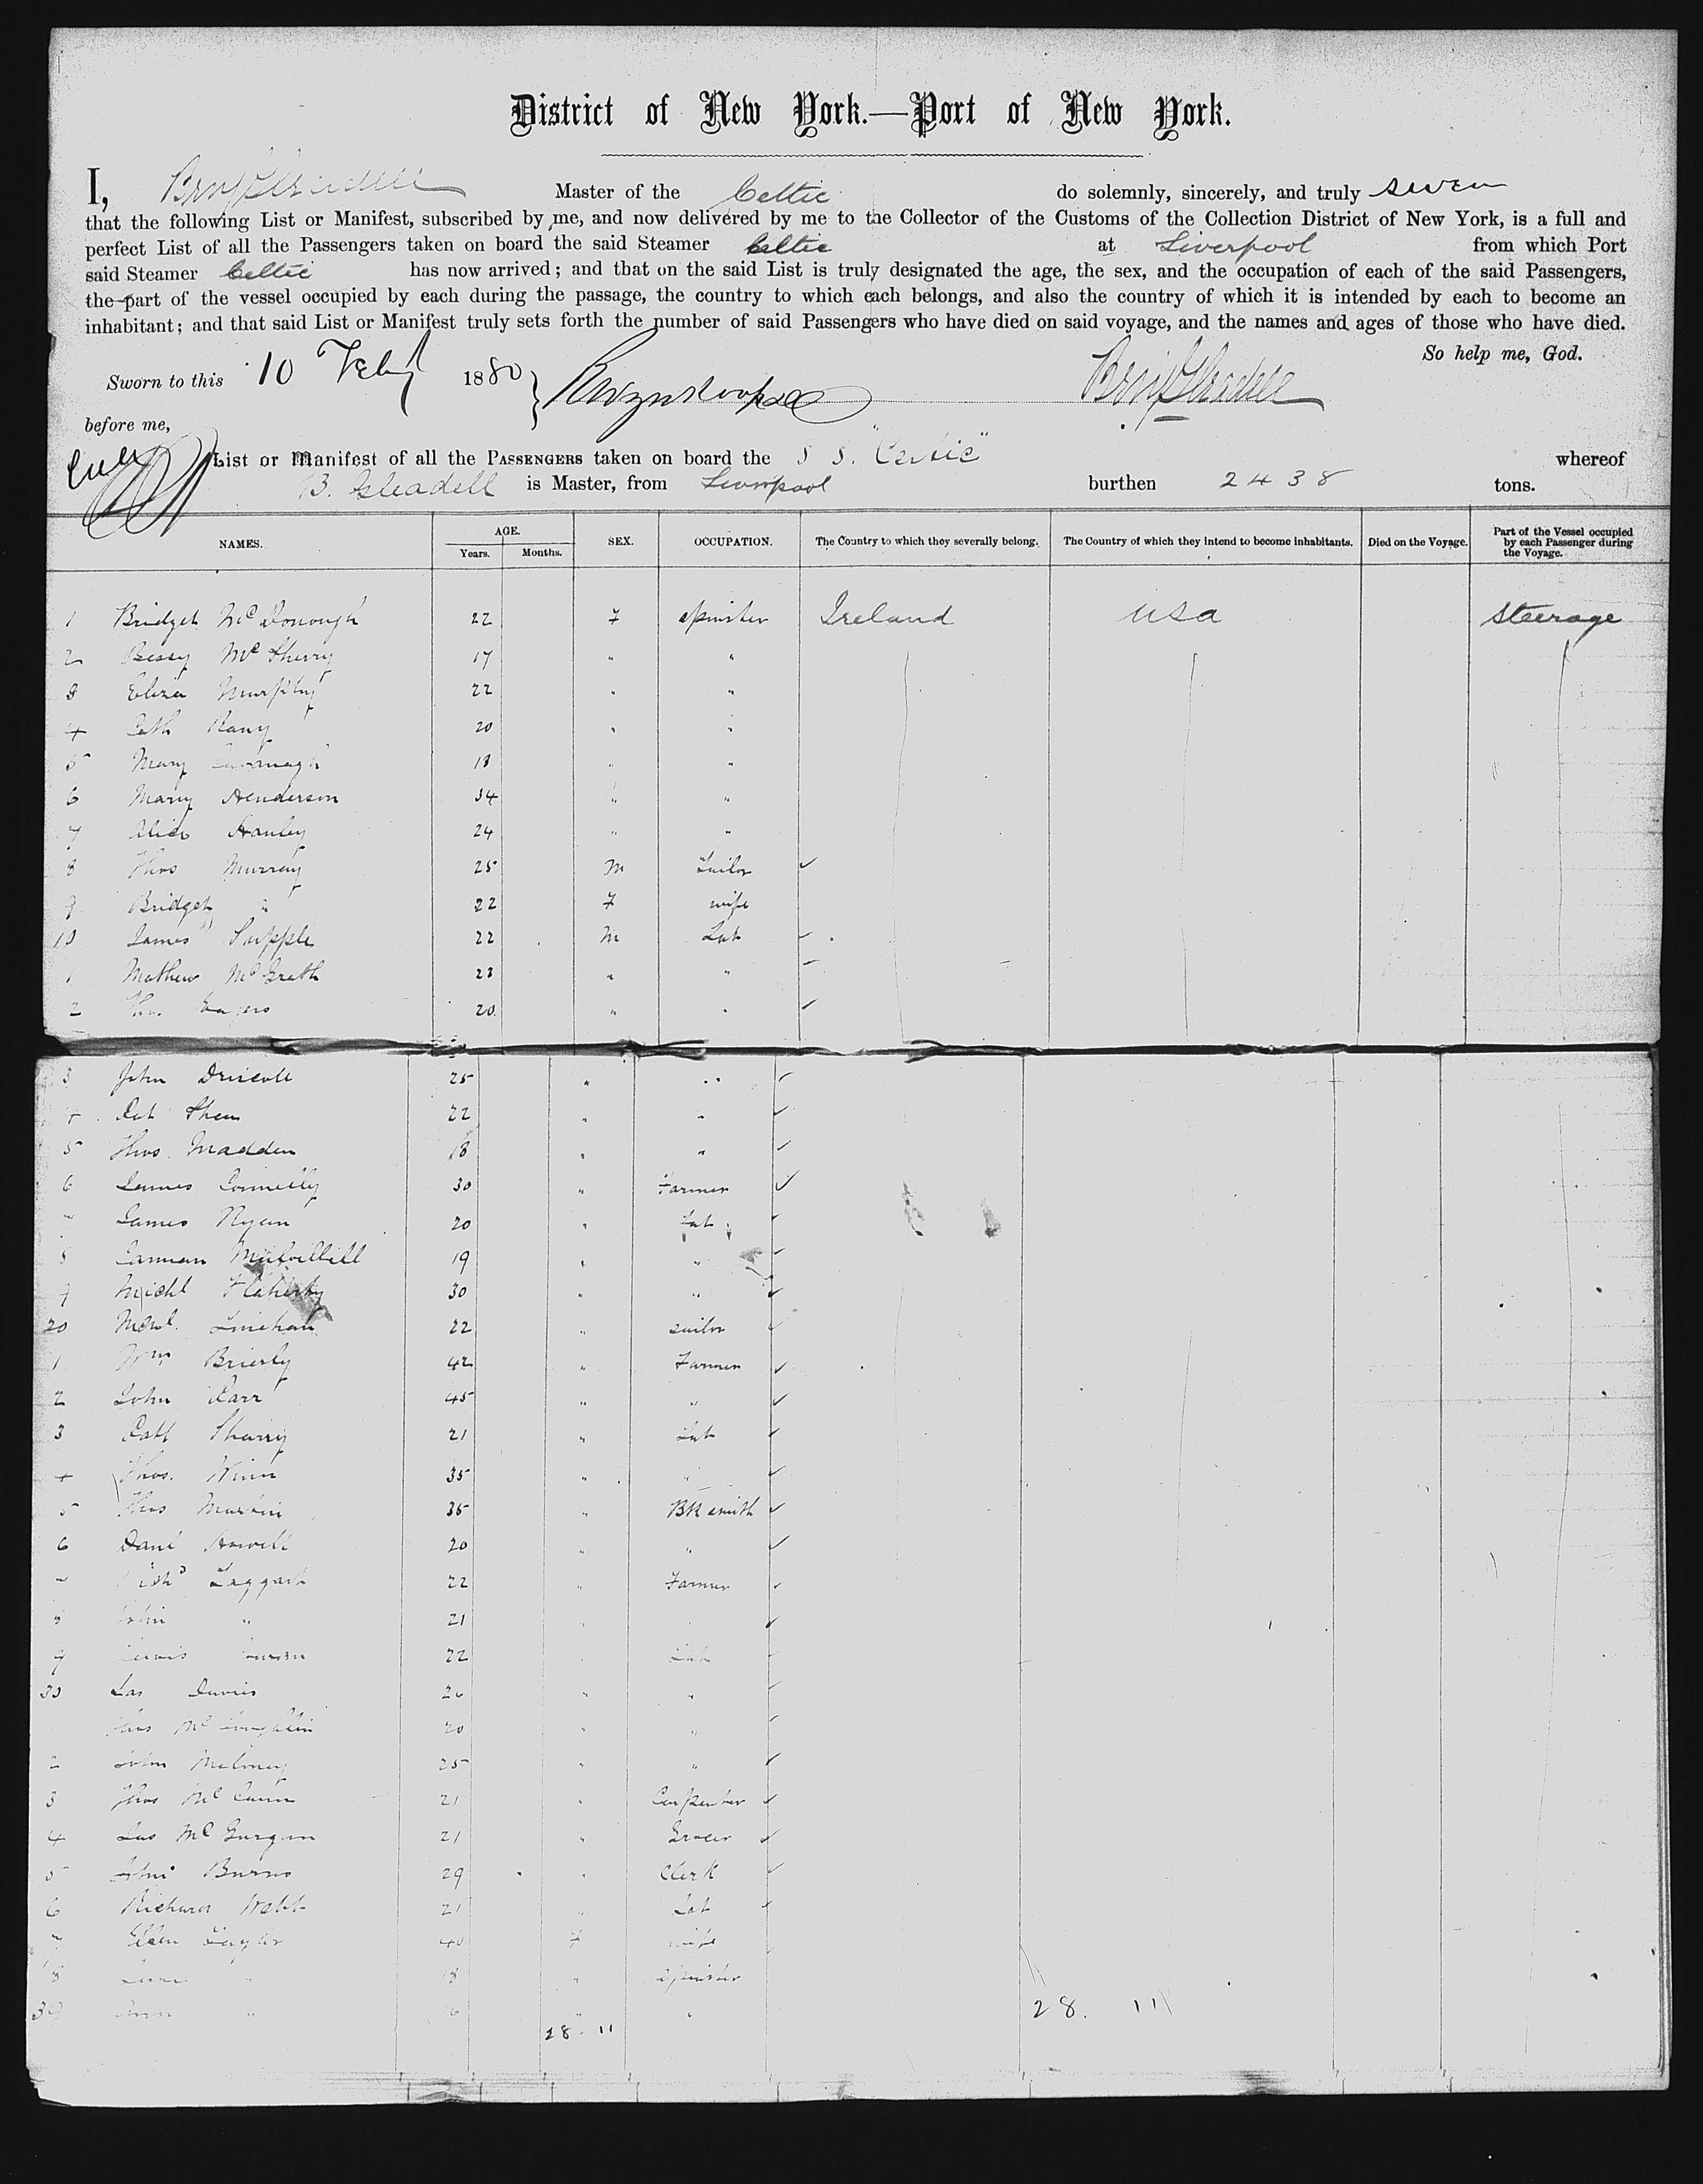 District of New York.—Port of New York.
I, Benj Gleadell Master of the Celtic do solemnly, sincerely, and truly swear
that the following List or Manifest, subscribed by me, and now delivered by me to the Collector of the Customs of the Collection District of New York, is a full and
perfect List of all the Passengers taken on board the said Steamer Celtic at Liverpool from which Port
said Steamer Celtic has now arrived; and that on the said List is truly designated the age, the sex, and the occupation of each of the said Passengers,
the part of the vessel occupied by each during the passage, the country to which each belongs, and also the country of which it is intended by each to become an
inhabitant; and that said List or Manifest truly sets forth the number of said Passengers who have died on said voyage, and the names and ages of those who have died.
So help me, God.
Sworn to this 10 Feby 1880 Benj Gleadell
before me,
List or Manifest of all the PASSENGERS taken on board the S S. "Celtic" whereof
B. Gleadell is Master, from Liverpool burthen 2438 tons.
NAMES. AGE. Years. Months. SEX. OCCUPATION. The Country to which they severally belong. The Country of which they intend to become inhabitants. Died on the Voyage. Part of the Vessel occupied by each Passenger during the Voyage.
1 Bridget McDonough 22 F Spinster Ireland USA Steerage
2 Bessy McSherry 17 " "
3 Eliza Murphy 22 " "
4 Cath Rany 20 " "
5 Mary Cavanagh 18 " "
6 Mary Henderson 34 " "
7 Alice Hanley 24 " "
8 Thos Murray 25 M Tailor
9 Bridget " 22 F wife
10 James Supple 22 M Lab
1 Mathew McGrath 23 " "
2 20 " "
3 John Driscoll 25 " "
4 Pat Shea 22 " "
5 Thos Madden 18 " "
6 James Connelly 30 " Farmer
7 James Ryan 20 " Lab
8 Mulvihill 19 " "
9 Michl Flaherty 30 " "
20 Michl Linehan 22 " Tailor
1 Wm Brierly 42 " Farmer
2 John Carr 45 " "
3 Patk Sharry 21 " Lab
4 Thos. Winn 35 " "
5 Thos Martin 35 " Bk smith
6 Danl Howell 20 " "
7 Taggart 22 " Farmer
8 John " 21
9 22 Lab
30 Jas Davis 26 " "
Thos McLoughlin 20 " "
2 John Maloney 25 " "
3 Thos McCann 21 " Carpenter
4 Jas McGurgan 21 " Grocer
5 John Burns 29 " Clerk
6 Richard Webb 21 " Lab
7 Ellen Taylor 40 F wife
8 " 18 " Spinster
39 Ann " 16 " "
28 - 11 28. 11